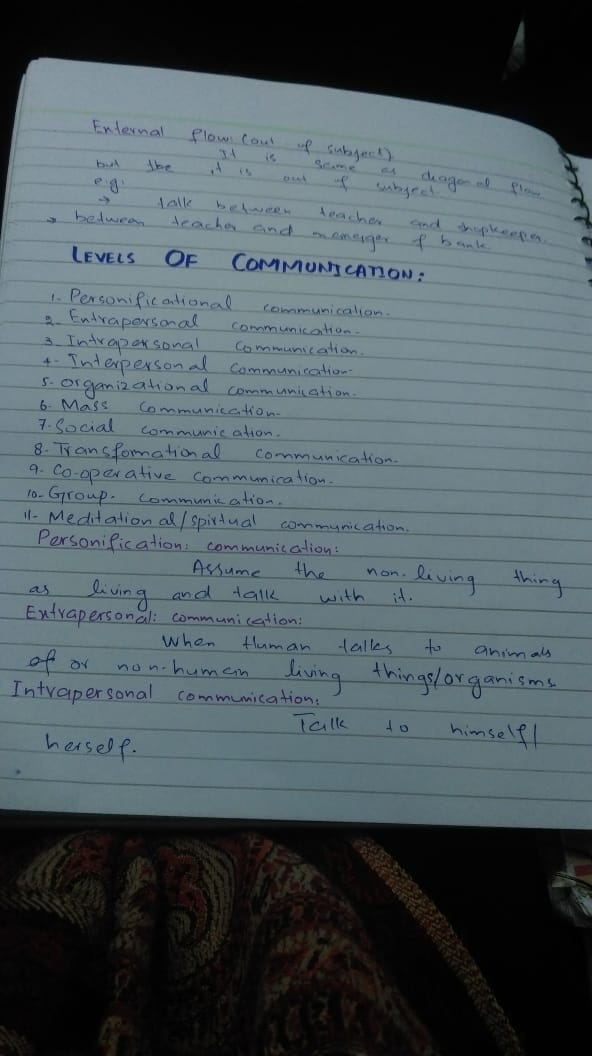 External flow: (out of subject)
It is same as diagonal flow
but the it is out of subject.
e.g:
→ talk between teacher and shopkeeper.
→ between teacher and meneger of bank.
LEVELS OF COMMUNICATION:
1. Personificational communication.
2. Extrapersonal communication.
3. Intrapersonal communication.
4. Interpersonal communication.
5. organizational communication.
6. Mass communication.
7. Social communication.
8. Transformational communication.
9. Co-operative communication.
10- Group. communication.
11- Meditational/spirtual communication.
Personification: communication:
Assume the non-living thing
as living and talk with it.
Extrapersonal: communication:
When Human talks to animals
of or non-human living things/organisms
Intrapersonal communication:
Talk to himself/
herself.